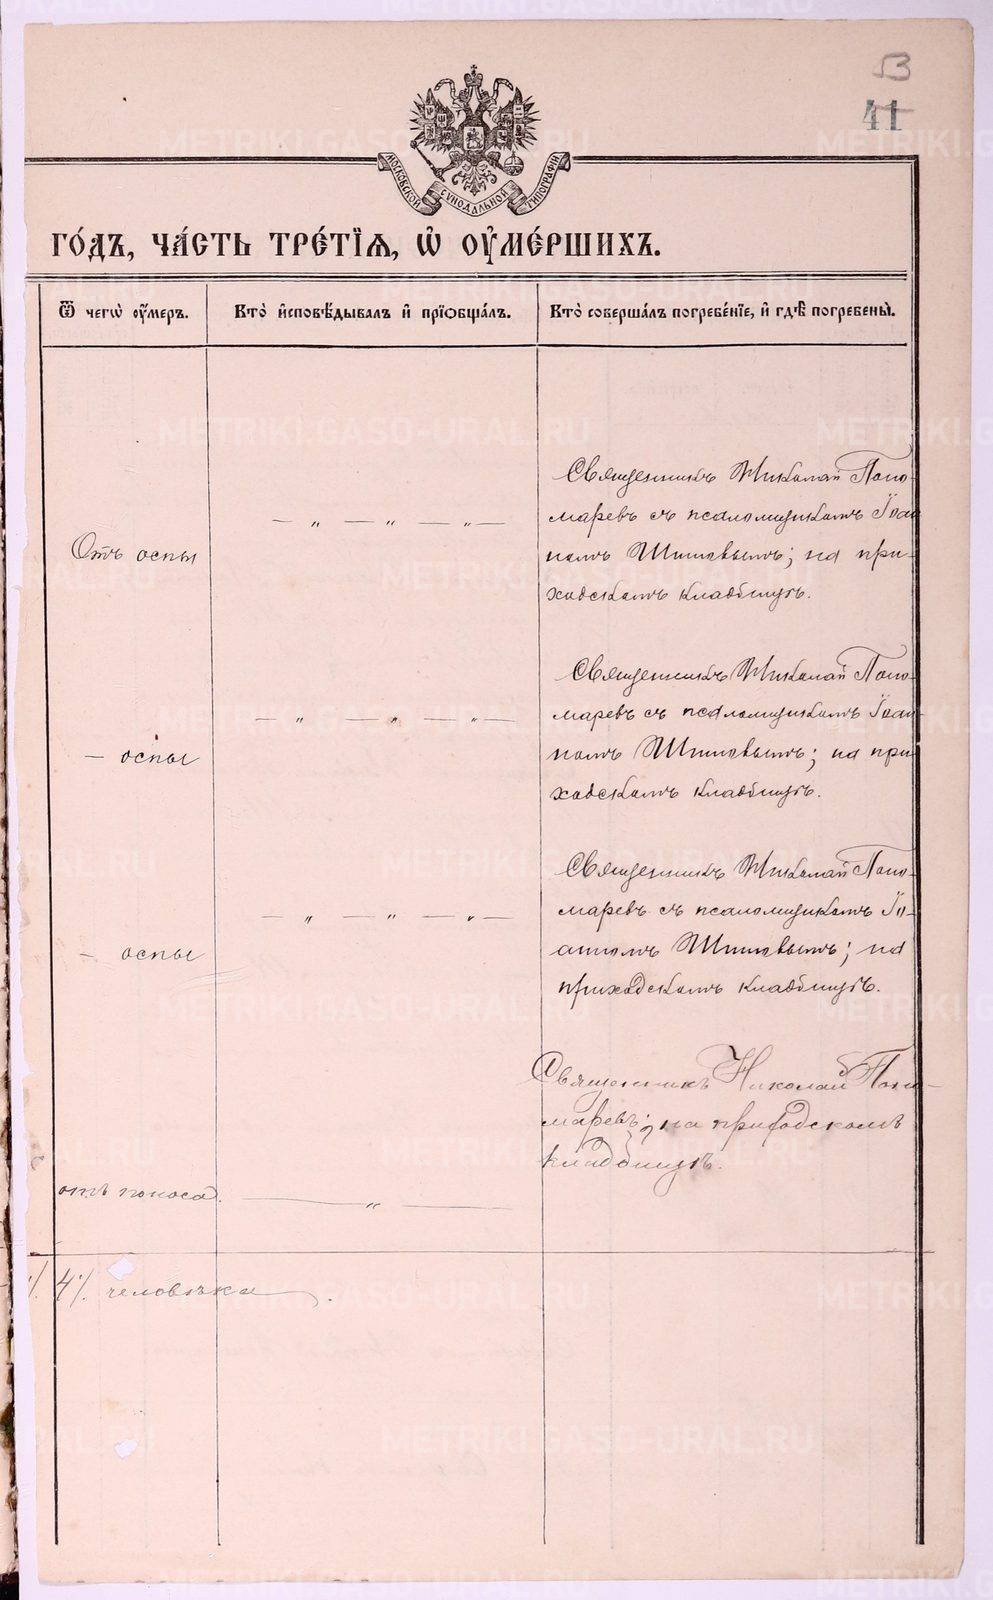 53
41
МОСКОВСКОЙ СѴНОДАЛЬНОЙ ТИПОГРАФІИ
ГО́ДЪ, ЧА́СТЬ ТРЕ́ТІѦ, Ѽ ОУ҆МЕ́РШИХЪ.
Ѿ чегѡ̀ оу҆́меръ.
Кто̀ и҆сповѣ́дывалъ и҆ прїѡбща́лъ.
Кто̀ соверша́лъ погребе́нїе, и҆ гдѣ̀ погребены̀.
Священникъ Николай Поно-
маревъ съ псаломщикомъ Іоан
номъ Шишовымъ; на при-
ходскомъ кладбищѣ.
— „ — „ — „ —
Отъ оспы
Священникъ Николай Поно-
маревъ съ псаломщикомъ Іоан-
номъ Шишовымъ; на при
ходскомъ кладбищѣ.
— „ — „ — „ —
— оспы
Священникъ Николай Поно-
маревъ съ псаломщикомъ Іо-
анномъ Шишовымъ; на
приходскомъ кладбищѣ.
— „ — „ — „ —
— оспы
Священникъ Николай Поно-
маревъ; на приходскомъ
кладбищѣ.
отъ поноса. — „ —
4% человѣка.
METRIKI.GASO-URAL.RU